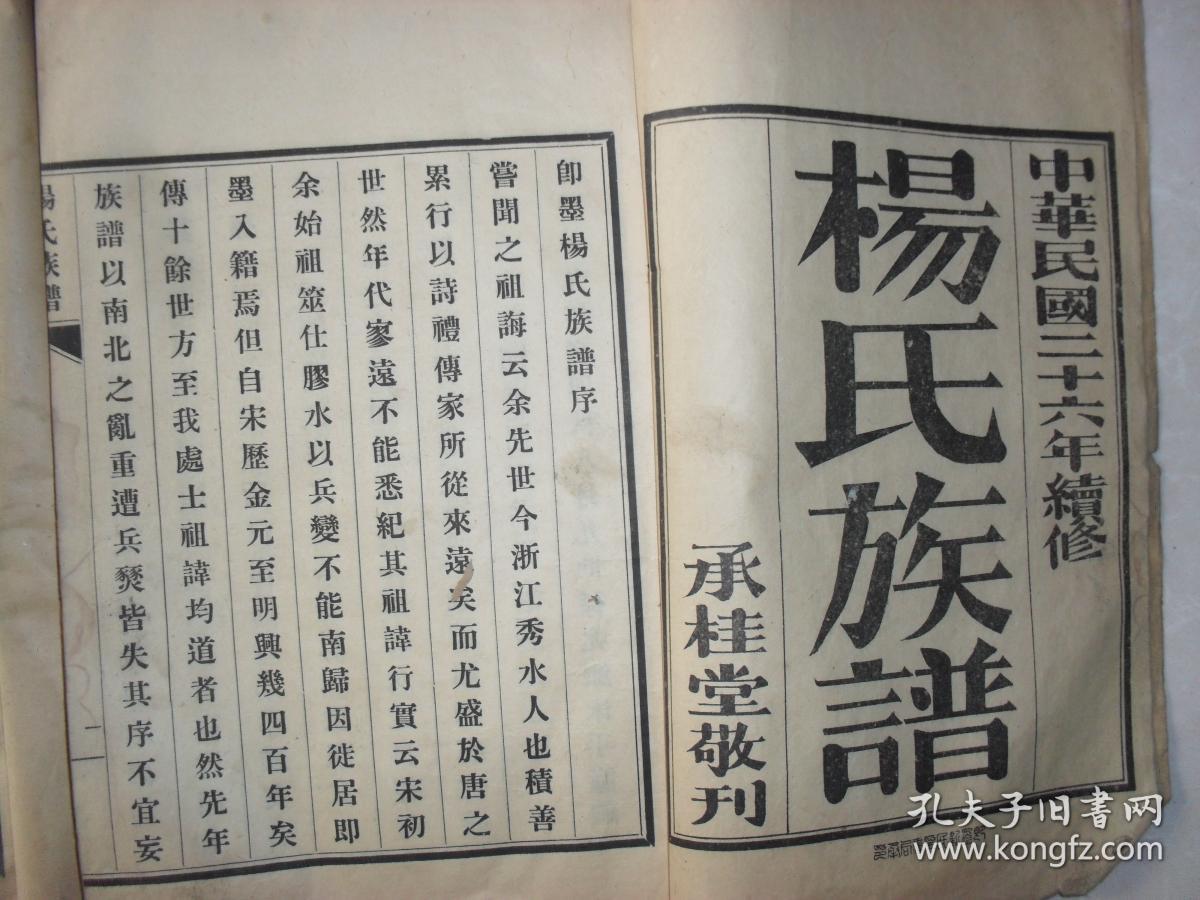 中華民國二十六年續修
楊氏族譜
承桂堂敬刊
卽墨楊氏族譜序
嘗聞之祖誨云余先世今浙江秀水人也積善
累行以詩禮傳家所從來遠矣而尤盛於唐之
世然年代寥遠不能悉紀其祖諱行實云宋初
余始祖筮仕膠水以兵變不能南歸因徙居即
墨入籍焉但自宋歷金元至明興幾四百年矣
傳十餘世方至我處士祖諱均道者也然先年
族譜以南北之亂重遭兵燹皆失其序不宜妄
楊氏族譜
一
孔夫子旧书网
www.kongfz.com